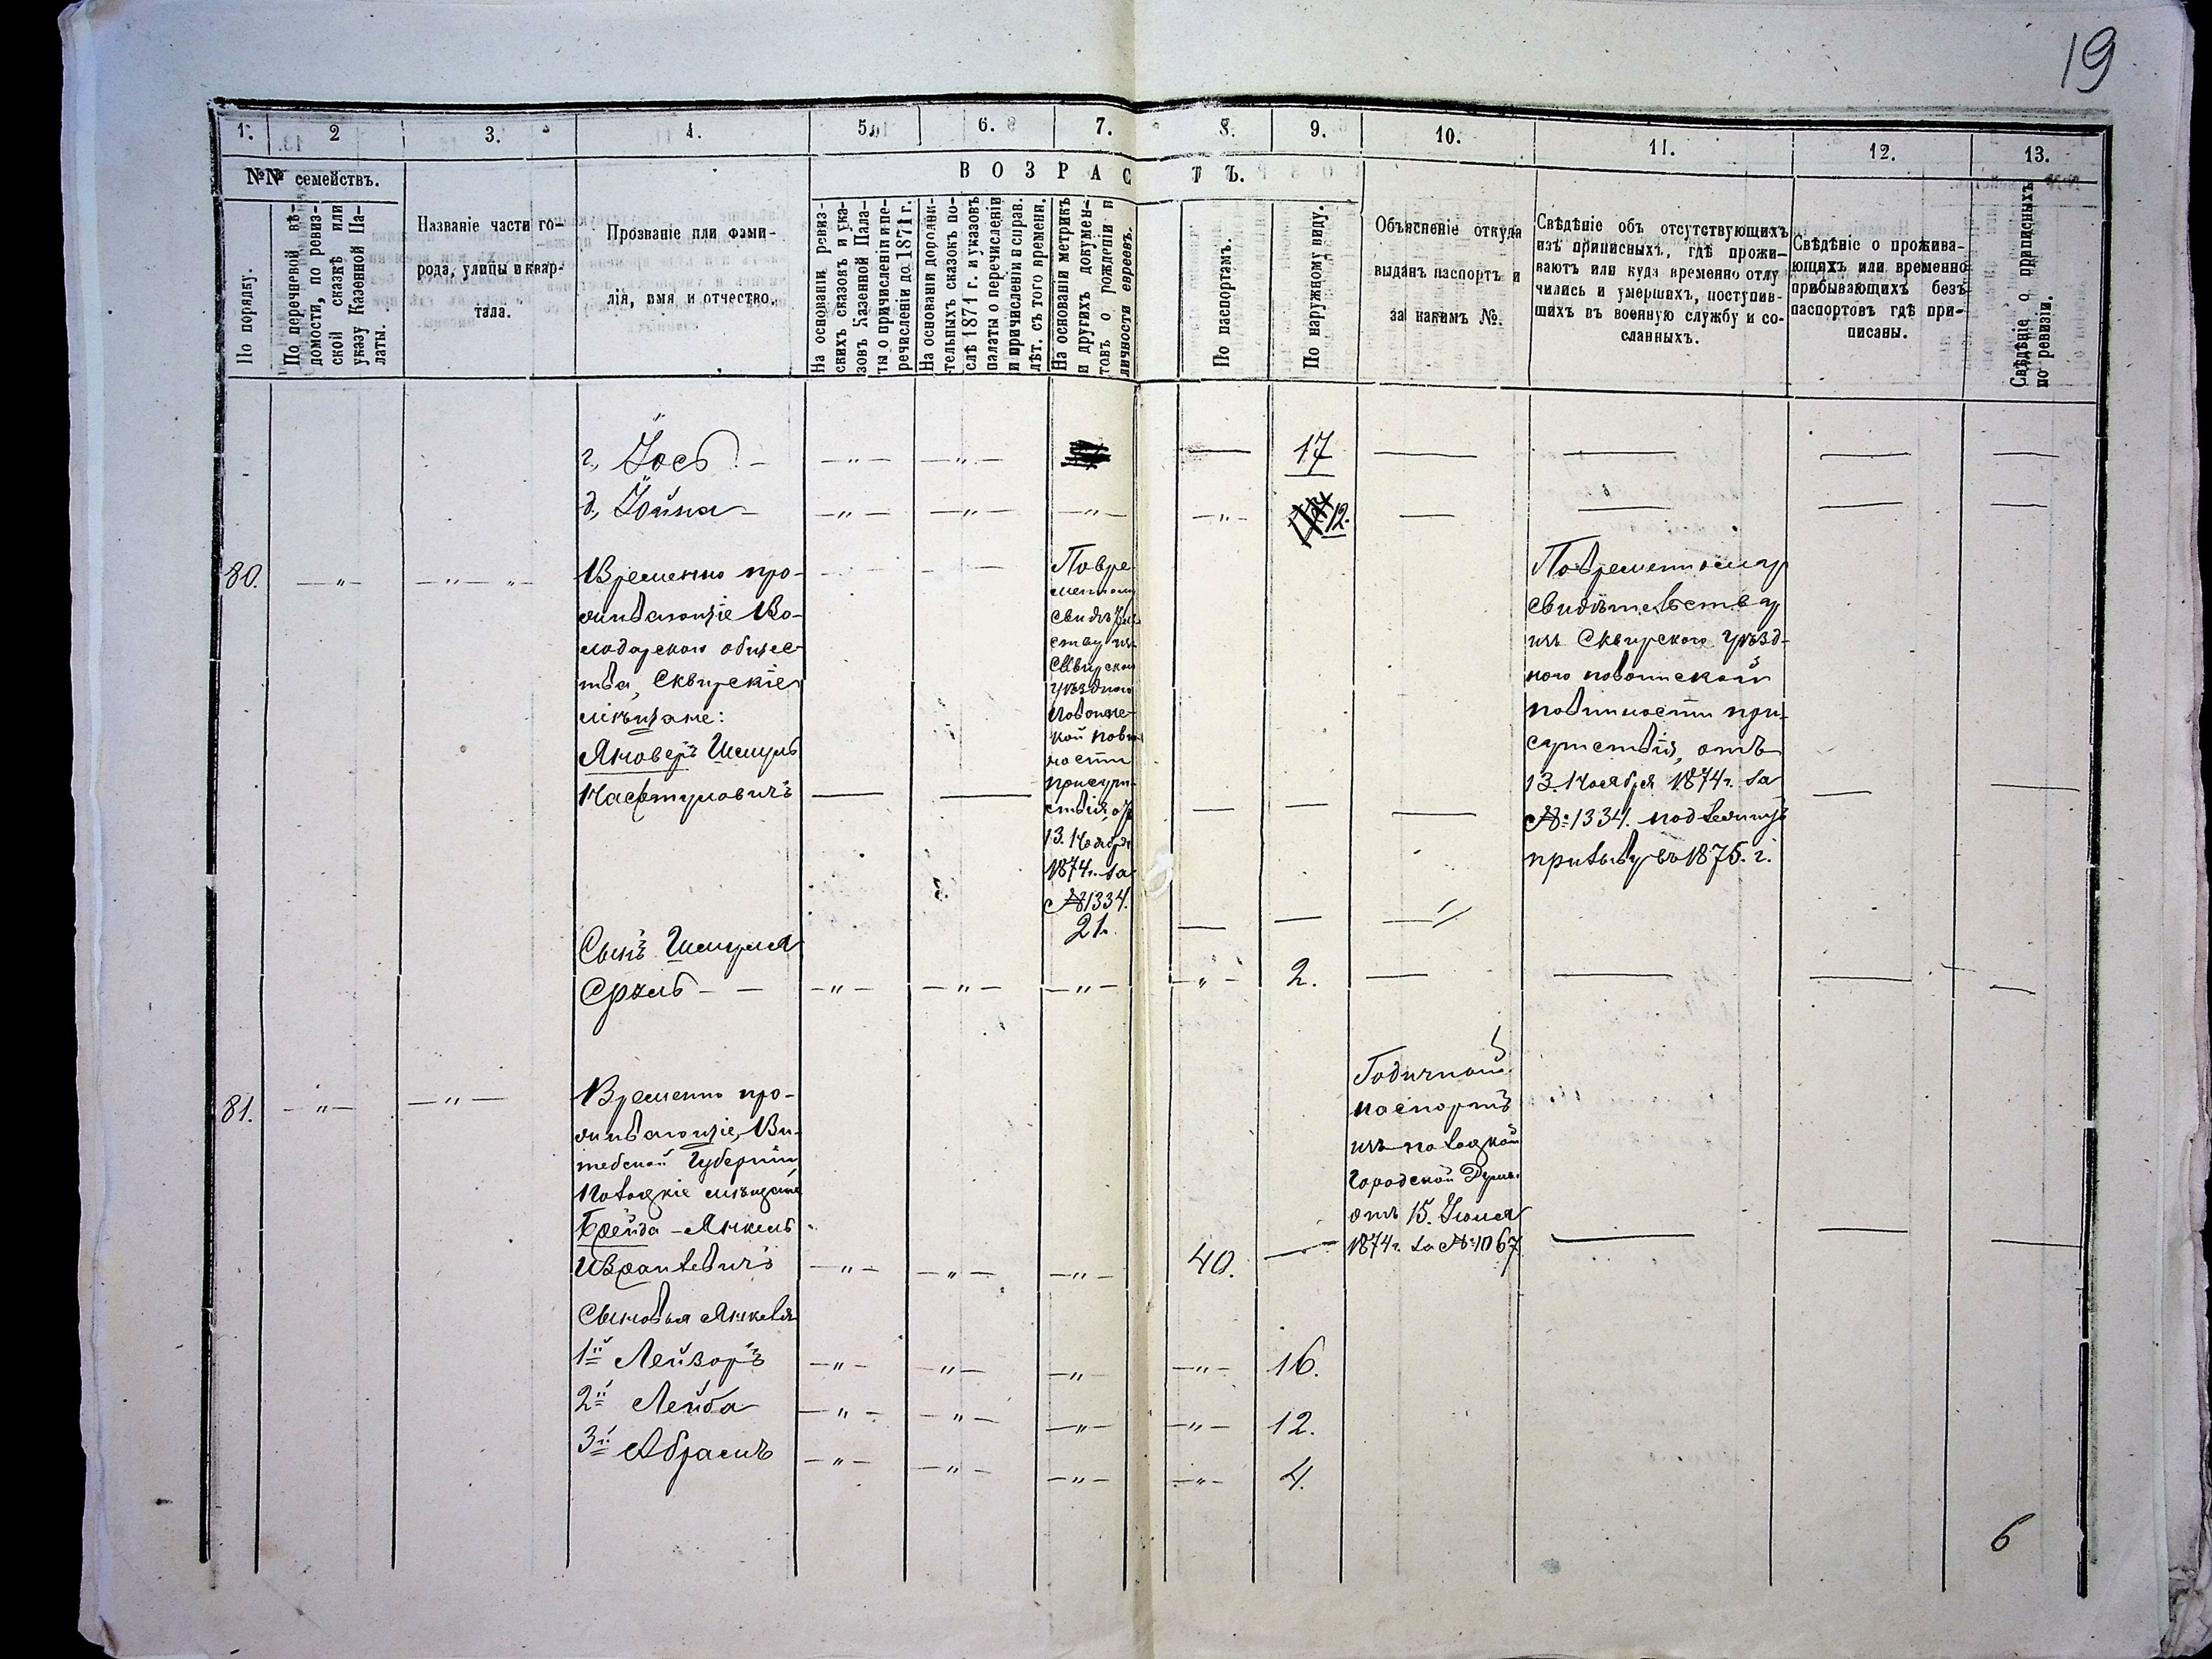 19
1. 2 3. 4. 5. 6. 7. 8. 9. 10. 11. 12. 13.
№№ семействъ.
ВОЗРАСТЪ.
По порядку.
По перечневой вѣ-
домости, по ревиз-
ской сказкѣ или
указу Казенной Па-
латы.
Названіе части го-
рода, улицы и квар-
тала.
Прозваніе или фами-
лія, имя и отчество.
На основаніи ревиз-
скихъ сказокъ и ука-
зовъ Казенной Пала-
ты о причисленіи и пе-
речисленіи до 1871 г.
На основаніи дополни-
тельныхъ сказокъ по-
слѣ 1871 г. и указовъ
палаты о перечисленіи
и причисленіи и справ.
лѣт. съ того времени.
На основаніи метрикъ
и другихъ докумен-
товъ о рожденіи и
личности евреевъ.
По паспортамъ.
По наружному виду.
Объясненіе откуда
выданъ паспортъ и
за какимъ №.
Свѣдѣніе объ отсутствующихъ
изъ приписныхъ, гдѣ прожи-
ваютъ или куда временно отлу
чились и умершихъ, поступив-
шихъ въ военную службу и со-
сланныхъ.
Свѣдѣніе о прожива-
ющихъ или временно
прибывающихъ безъ
паспортовъ гдѣ при-
писаны.
Свѣдѣніе о приписныхъ
по ревизіи.
г., Іось — — " — — " — — 17 — — — —
д., Іойна — — " — — " — — " — — " — 12. — — — —
80. — " — — " — "
Временно про-
живающіе Во-
лодарского общес-
тва, Сквирскіе
мѣщане:
Яновер Шмуль
Нафтулович — —
Повре
менному
свидѣтель
ству изъ
Сквирского
уѣзднаго
повоинс-
кой повин
ности
присут-
ствія, отъ
13. Ноября
1874г. за
№1334.
21.
Повременному
свидѣтельству
изъ Сквирского уѣзд-
ного повоинской
повинности при-
сутствія, отъ
13. Ноября 1874г. за
№:1334. подлежитъ
призыву въ 1875. г.
Сынъ Шмуля
Сруль — — — " — — " — — " — — " — 2. — — — —
81. — " — — " —
Временно про-
живающіе, Ви-
тебской Губерніи
Полоцкіе мѣщане
Брейда - Янкель
— " — — " — — " — 40. —
Годичной
паспортъ
изъ полоцкой
Городской Думы
отъ 15. Іюля
1874г. за №:1067
— — —
Сыновья Янкеля
1й Лейзоръ — " — — " — — " — — " — 16.
2й Лейба — " — — " — — " — — " — 12.
3й Абрамъ — " — — " — — " — — " — 4.
6